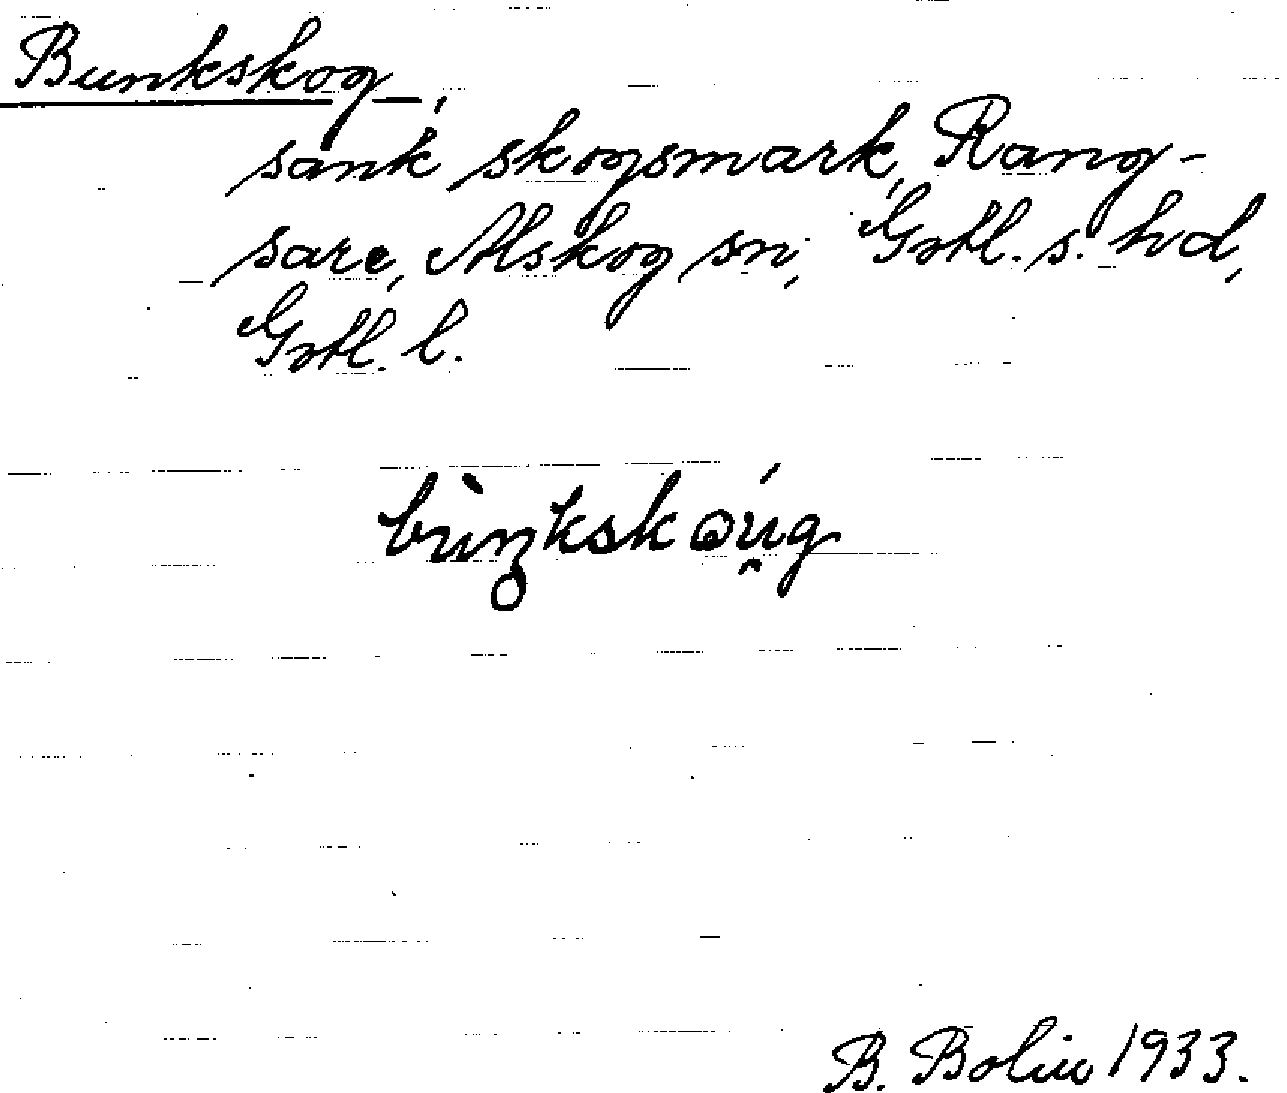 Bunkskog,
sank skogsmark, Rang-
sare, Alskog sn, Gotl. s. hd,
Gotl. l.
bùŋkskǫu̯g
B. Bolin 1933.